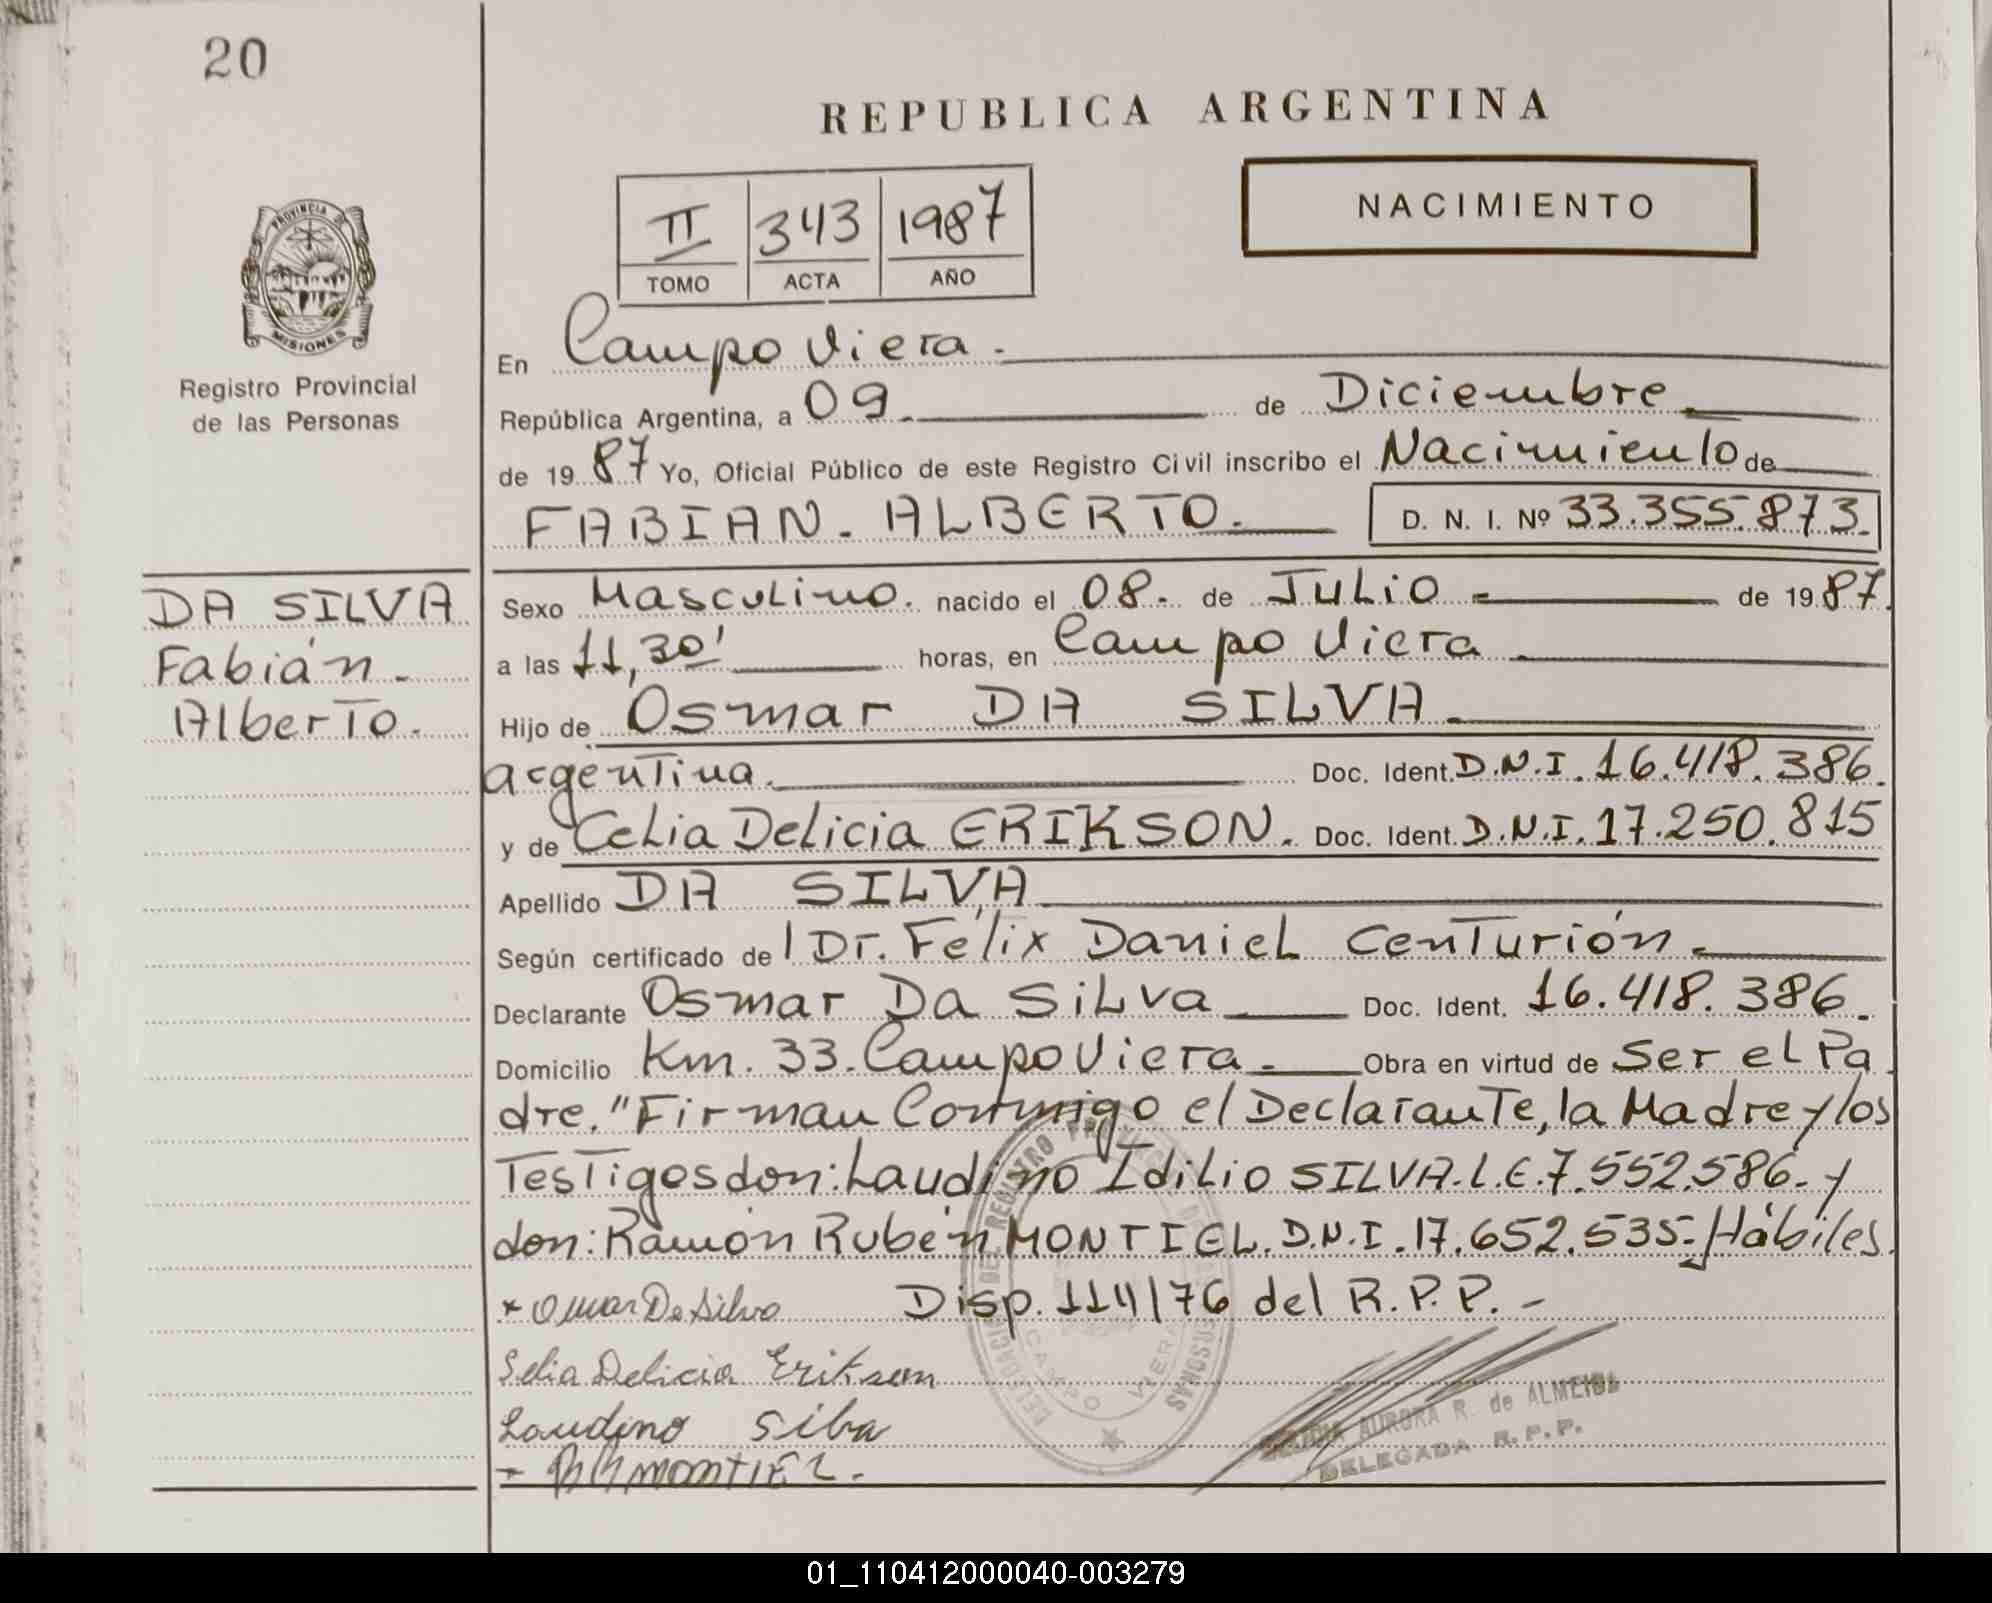 20
REPUBLICA ARGENTINA
II 343 1987
TOMO ACTA AÑO
NACIMIENTO
PROVINCIA DE MISIONES
Registro Provincial
de las Personas
DA SILVA
Fabián
Alberto.
En Campo Viera.
República Argentina, a 09. de Diciembre
de 19 87 Yo, Oficial Público de este Registro Civil inscribo el Nacimiento de
FABIAN - ALBERTO. D. N. I. Nº 33.355.873.
Sexo Masculino. nacido el 08. de JULIO de 19 87.
a las 11,30' horas, en Campo Viera
Hijo de Osmar DA SILVA
argentina. Doc. Ident. D.N.I. 16.418.386.
y de Celia Delicia ERIKSON. Doc. Ident. D.N.I. 17.250.815
Apellido DA SILVA
Según certificado de l Dr. Félix Daniel Centurión
Declarante Osmar Da Silva Doc. Ident. 16.418.386.
Domicilio Km. 33. Campo Viera. Obra en virtud de Ser el Pa
dre. "Firman Conmigo el Declarante, la Madre y los
Testigos don: Laudino Idilio SILVA. L.E. 7.552.586. y
don: Ramón Rubén MONTIEL. D.N.I. 17.652.535. Hábiles.
Disp. 114/76 del R.P.P. -
x Omar Da Silva
Selia Delicia Erikson
Laudino Silba
MONTIEL.
DELEGACION DEL REGISTRO PROVINCIAL DE LAS PERSONAS
CAMPO VIERA
AURORA R. de ALMEIDA
DELEGADA R.P.P.
01_110412000040-003279